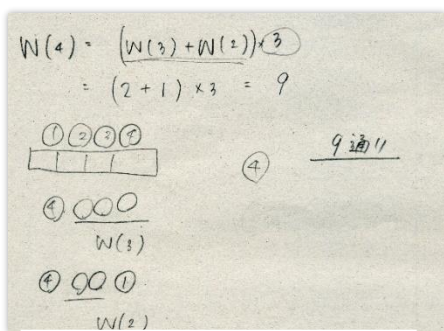 W(4) = (W(3) + W(2)) × 3
= (2 + 1) × 3 = 9
① ② ③ ④
④
9通り
④ ○○○
W(3)
④ ○○ ①
W(2)